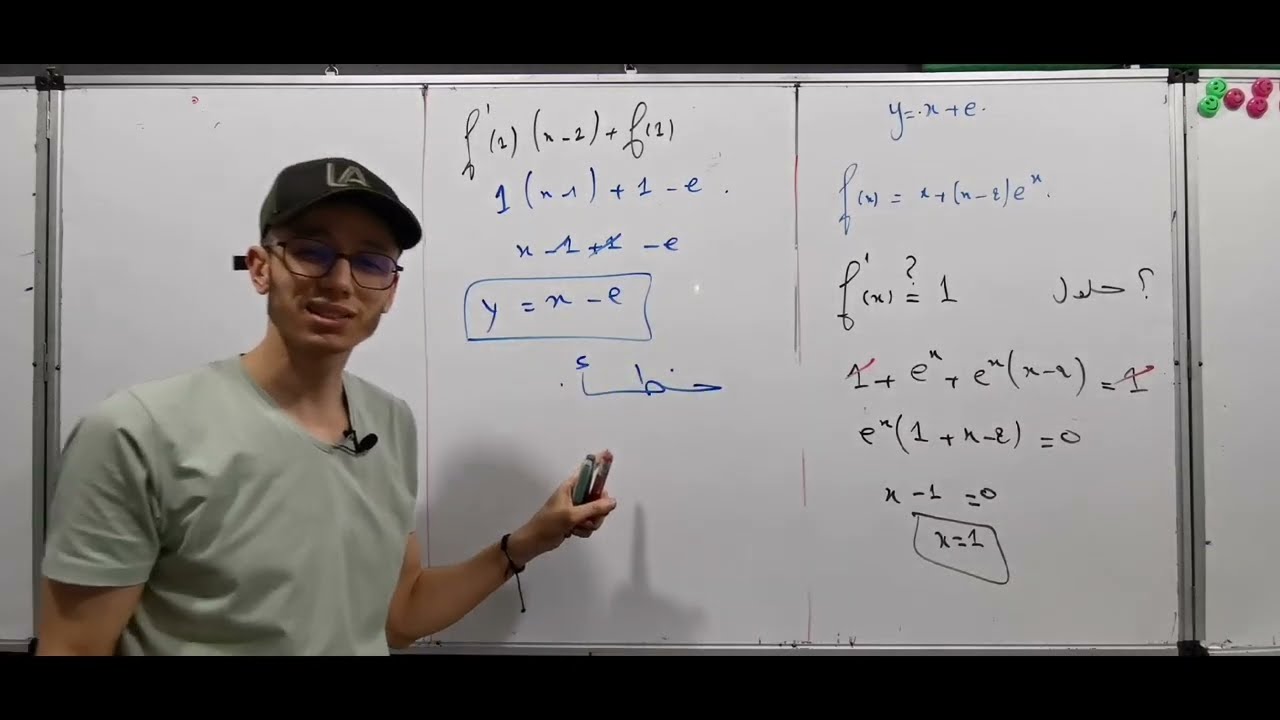 LA
f'(1) (x-1) + f(1)
1 (x-1) + 1 - e .
x - 1 + 1 - e
y = x - e
خطأ .
y = x + e .
f(x) = x + (x-2)e^x .
f'(x) ?= 1 حلول ؟
1 + e^x + e^x (x-2) = 1
e^x (1 + x - 2) = 0
x - 1 = 0
x = 1